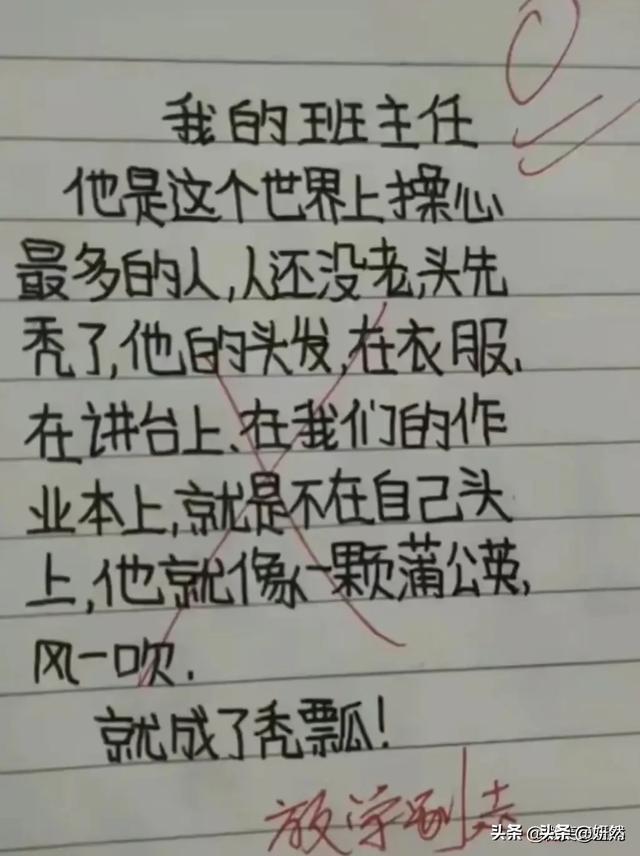 我的班主任
他是这个世界上操心
最多的人,人还没老,头先
秃了,他的头发,在衣服、
在讲台上、在我们的作
业本上,就是不在自己头
上,他就像一颗蒲公英,
风一吹.
就成了秃瓢瓜!
放学别走
头条 @头条@妍然